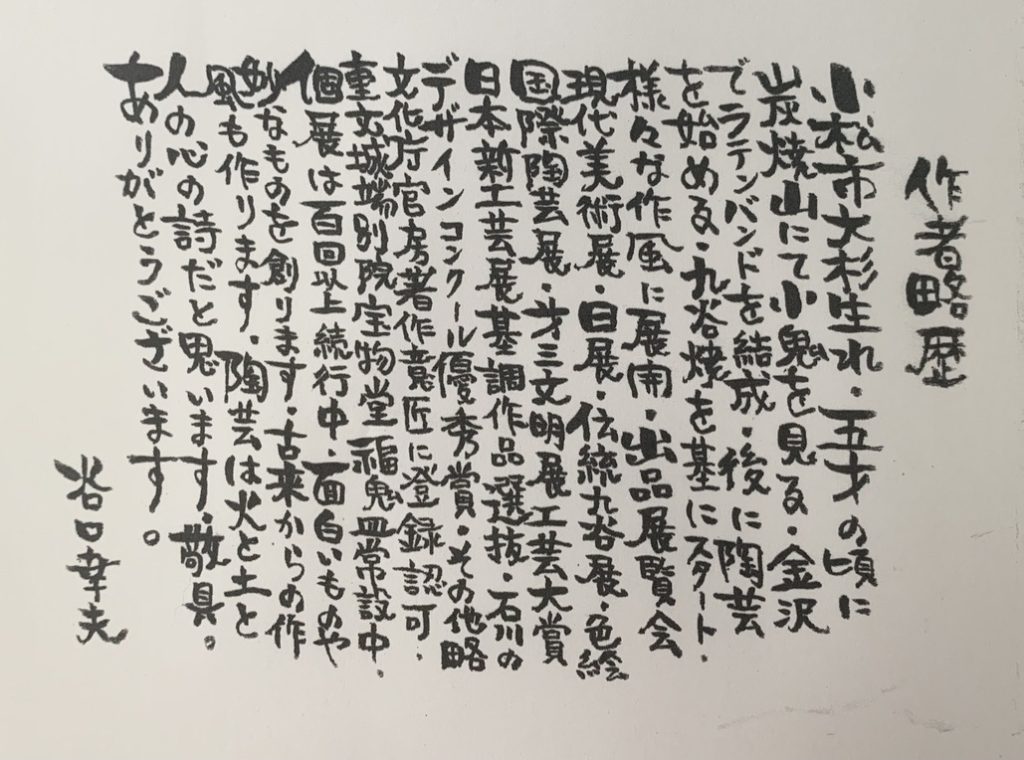 作者略歴
小松市大杉生れ・五才の頃に
炭焼山にて小鬼を見る・金沢
でラテンバンドを結成・後に陶芸
を始める・九谷焼を基にスタート・
様々な作風に展開・出品展覧会
現代美術展・日展・伝統九谷展・色絵
国際陶芸展・才三文明展工芸大賞
日本新工芸展基調作品選抜・石川の
デザインコンクール優秀賞・その他略
文化庁官房著作意匠に登録認可・
重文城端別院宝物堂福鬼皿常設中・
個展は百回以上続行中・面白いものや
妙なものを創ります・古来からの作
風も作ります・陶芸は火と土と
人の心の詩だと思います・敬具。
ありがとうございます。
谷口幸夫